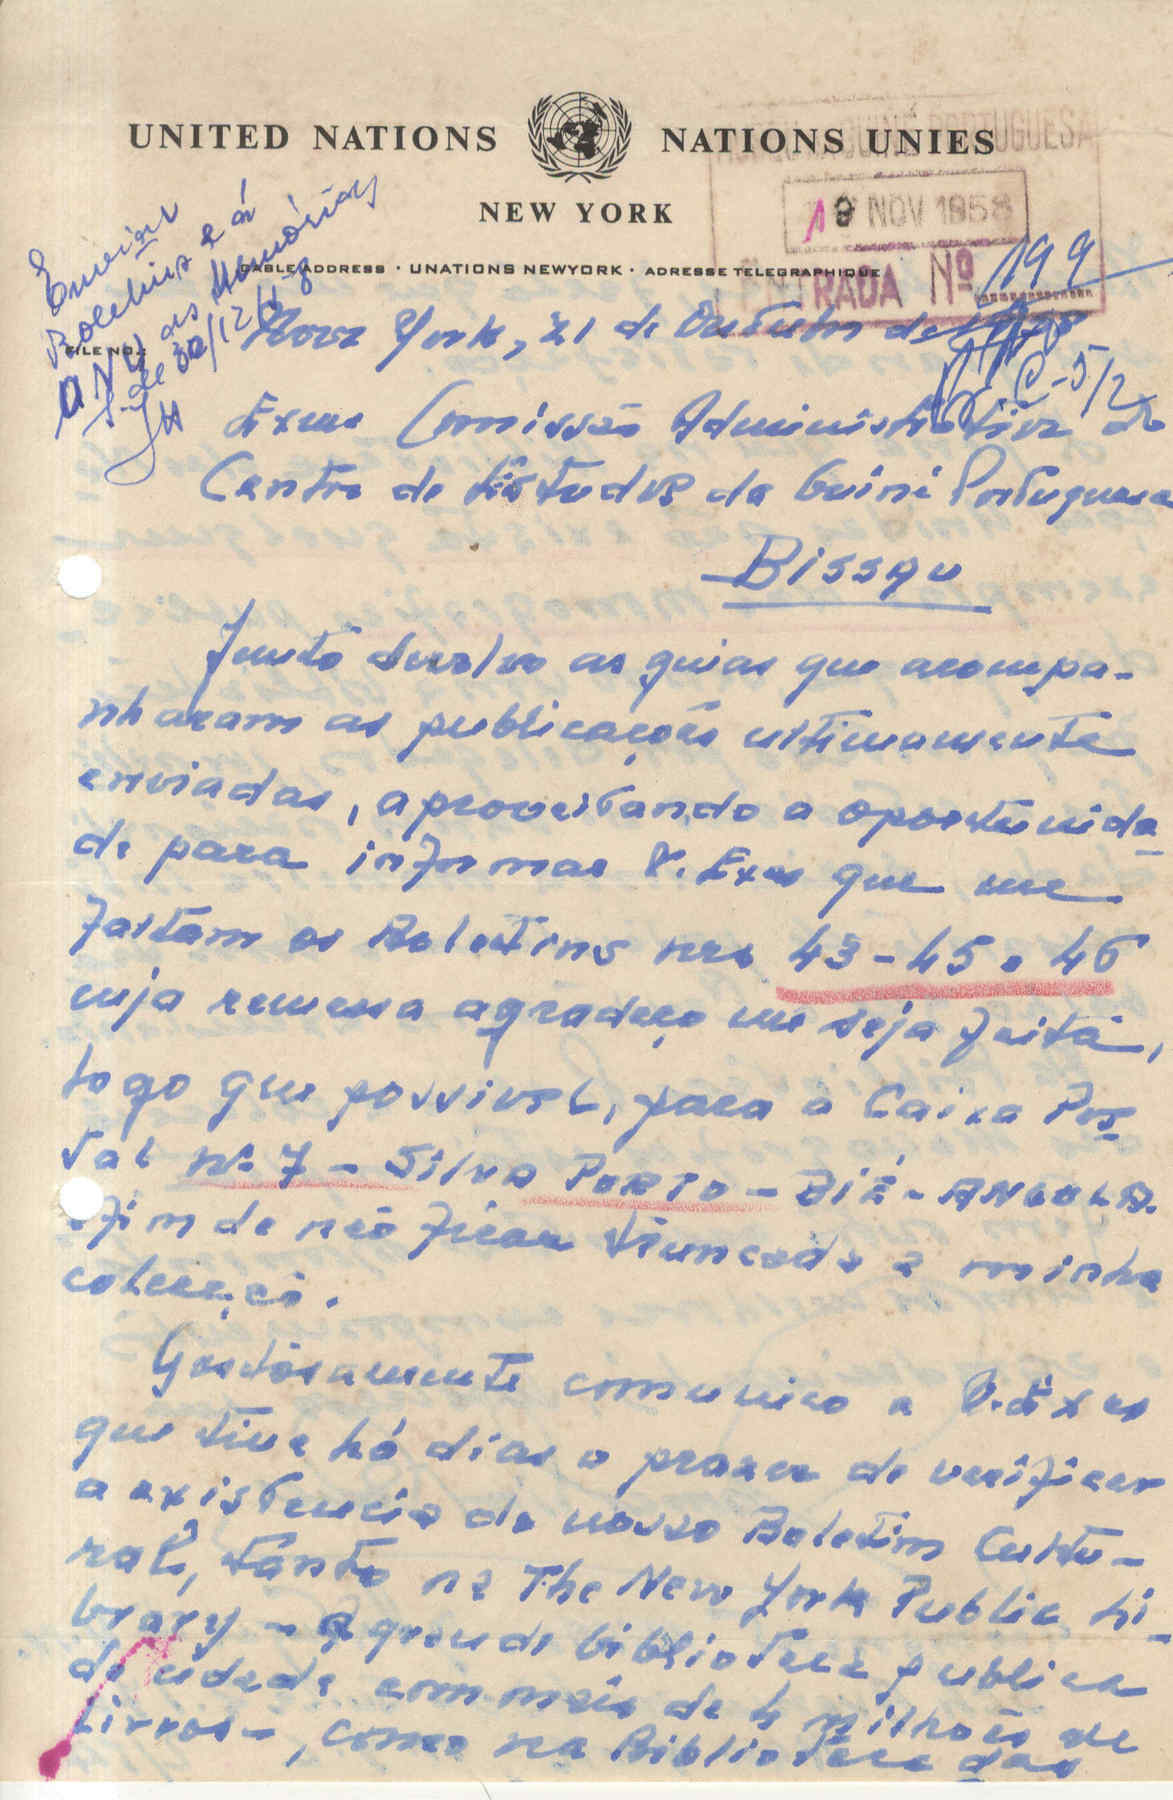 UNITED NATIONS NATIONS UNIES
NEW YORK
CABLE ADDRESS · UNATIONS NEWYORK · ADRESSE TELEGRAPHIQUE
FILE NO.:
GUINÉ PORTUGUESA
19 NOV 1958
ENTRADA Nº 199
C-5/2
Enviar
Boletins e á
as Memórias
30/12/58
Nova York, 21 de Outubro de 1958
Exma Comissão Administrativa do
Centro de Estudos da Guiné Portuguesa
Bissau
Junto devolvo as guias que acompa-
nharam as publicações ultimamente
enviadas, aproveitando a oportunida-
de para informar V. Exas que me
faltam os Boletins nºs 43-45 e 46
cuja remessa agradeço me seja feita,
logo que possivel, para a Caixa Pos-
tal Nº 7 - Silva PORTO - BIÉ - ANGOLA.
afim de não ficar truncada a minha
colecção.
Gostosamente comunico a V. Exas
que tive há dias o prazer de verificar
a existencia do nosso Boletim Cultu-
ral, tanto na The New York Public Li-
brary - a grande biblioteca publica
da cidade com mais de 4 milhões de
livros -, como na Biblioteca das